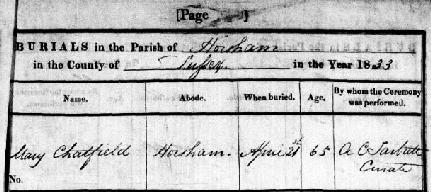 [Page ]
BURIALS in the Parish of Horsham
in the County of Sussex in the Year 1833
Name. Abode. When buried. Age. By whom the Ceremony was performed.
Mary Chatfield Horsham. April 21 65 A C
Curate
No.